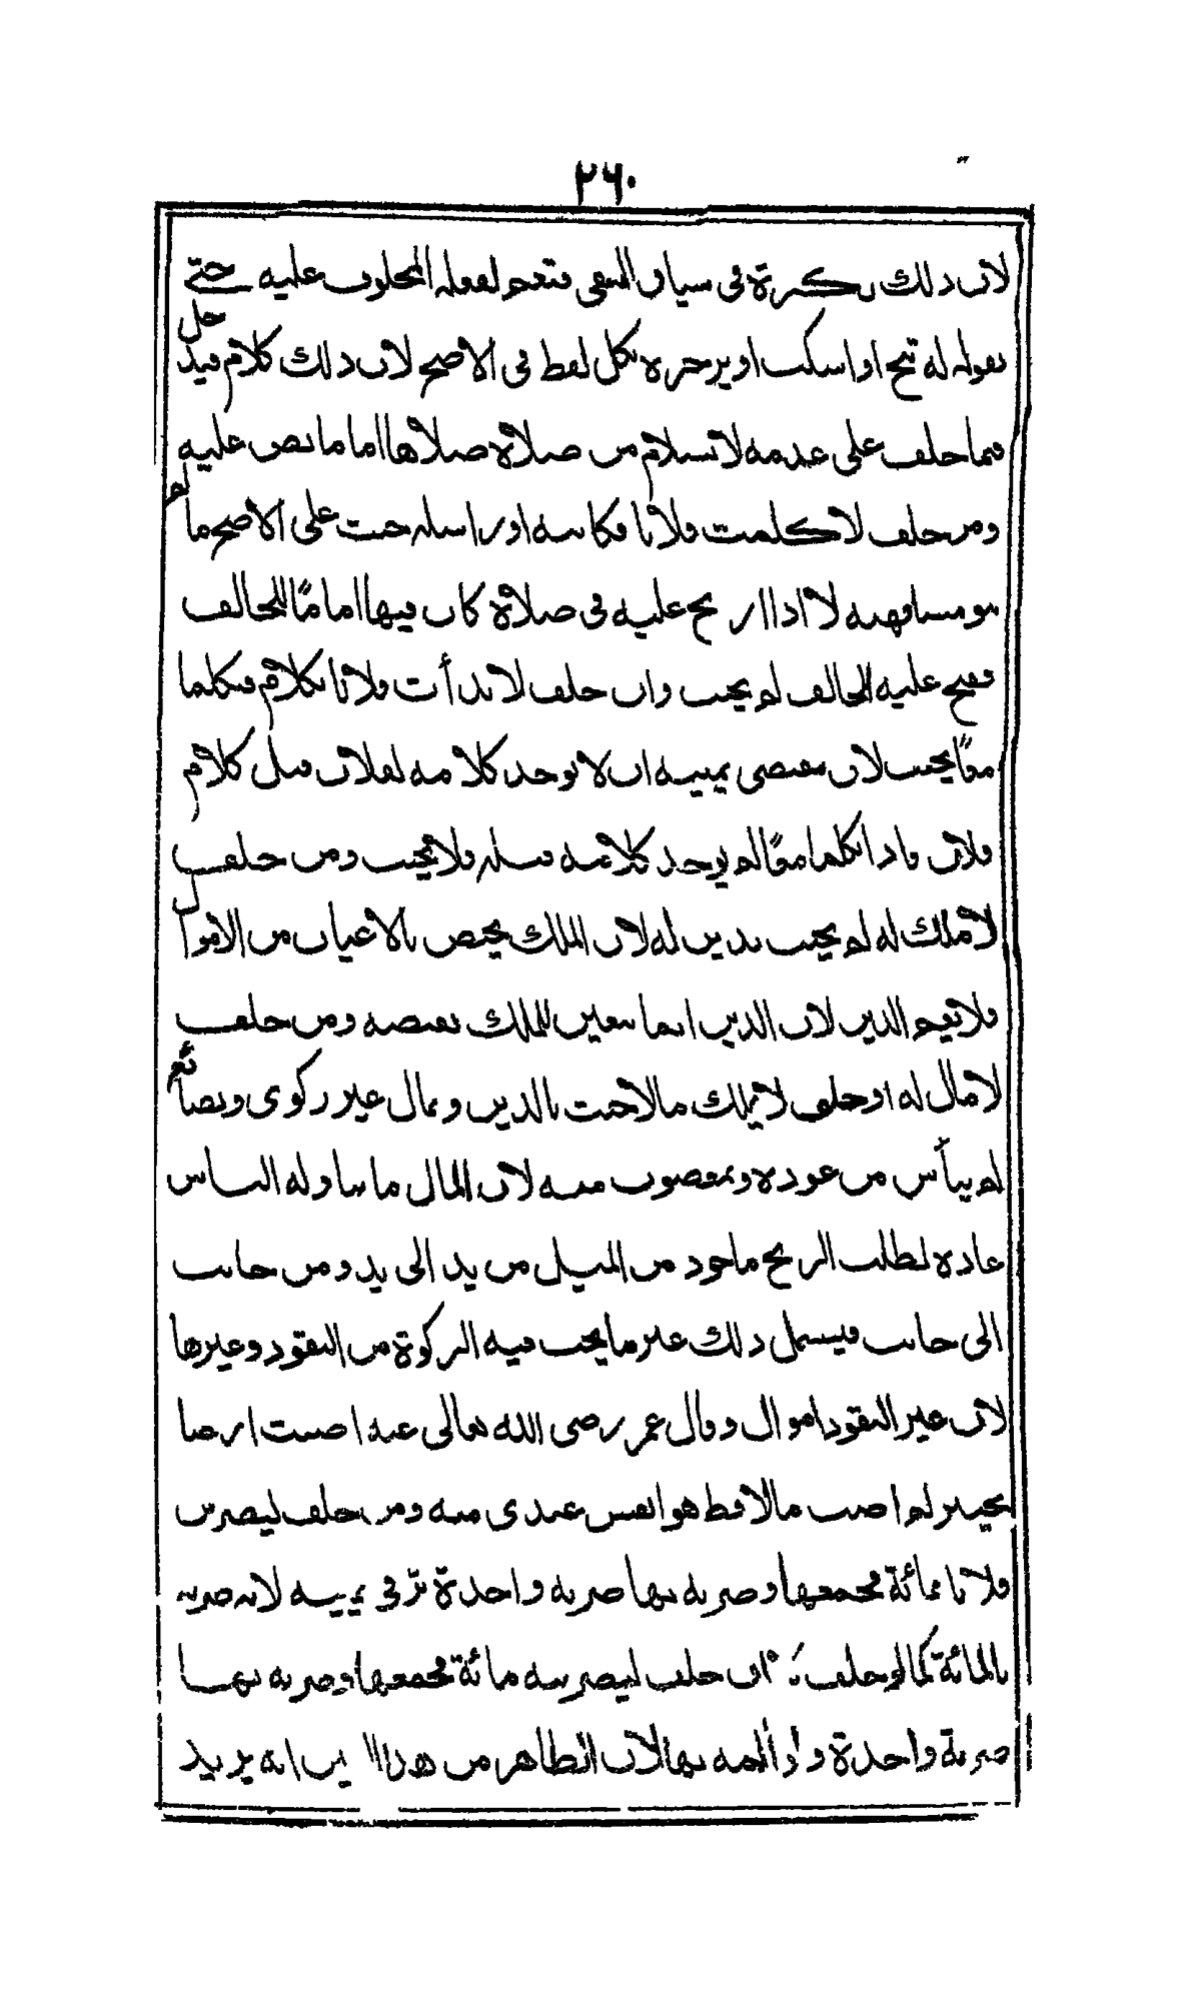 ٢٦٠
لان ذلك نكرة فى سياق النفى فتعم لفعله المحلوف عليه حتى
بقوله له تنح او اسكت او بزجره بكل لفظ فى الاصح لان ذلك كلام فيدخل
فيما حلف على عدمه لا بسلام من صلاة صلاها اماما نص عليه
ومن حلف لا كلمت فلانا فكاتبه او راسله حنث على الاصح ما لم
ينو مشافهته لا اذا ارتج عليه فى صلاة كان فيها اماما للحالف
ففتح عليه الحالف لم يحنث وان حلف لا بدأت فلانا بكلام فتكلما
معًا يحنث لان مقتضى يمينه ان لا يوجد كلامه لفلان قبل كلام
فلان فاذا تكلما معًا لم يوجد كلامه قبله فلا يحنث ومن حلف
لا ملك له لم يحنث بدين له لان الملك يختص بالاعيان من الاموال
فلا يعم الدين لان الدين انما يتعين الملك بقبضه ومن حلف
لا مال له او حلف لا يملك مالا حنث بالدين وبمال غير زكوى وبضائع
لم ييأس من عوده وبمغصوب منه لان المال ما تناوله الناس
عادة لطلب الربح ماخوذ من الميل من يد الى يد ومن جانب
الى جانب فيشمل ذلك غير ما يجب فيه الزكوة من النقود وغيرها
لان غير النقود اموال وقال عمر رضى الله تعالى عنه اصبت ارضا
بخيبر لم اصب مالا قط هو انفس عندى منه ومن حلف ليضربن
فلانا بمائة فجمعها وضربه بها ضربة واحدة بر فى يمينه لانه ضربه
بالمائة كما لو حلف ان حلف ليضربنه مائة فجمعها وضربه بها
ضربة واحدة ولو ألمه بها لان الظاهر من هذا اليمين انه يريد